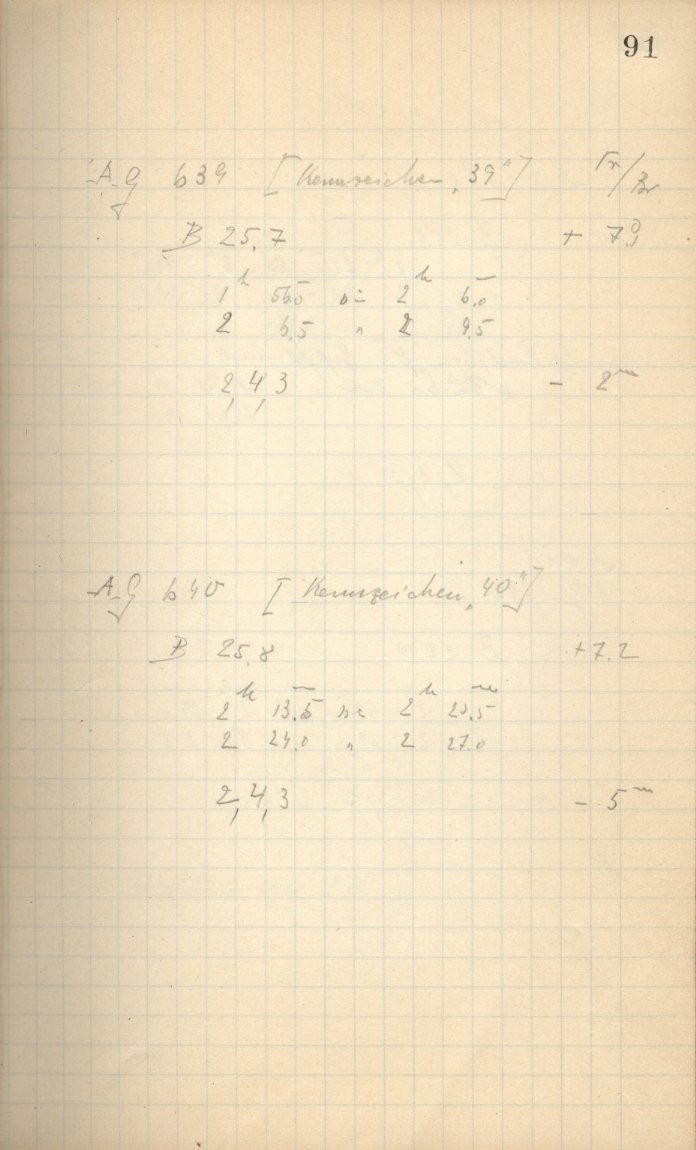 91
A.G b39 [Kennzeichen „39"] Tr/Br
B 25,7 + 7,9
1h 56,0m bis 2h 6,0m
2 6,5 " 2 9,5
2,4,3 - 2m
A.G b40 [Kennzeichen „40"]
B 25,8 +7,2
2h 13,5m bis 2h 23,5m
2 24,0 " 2 27,0
2,4,3 - 5m